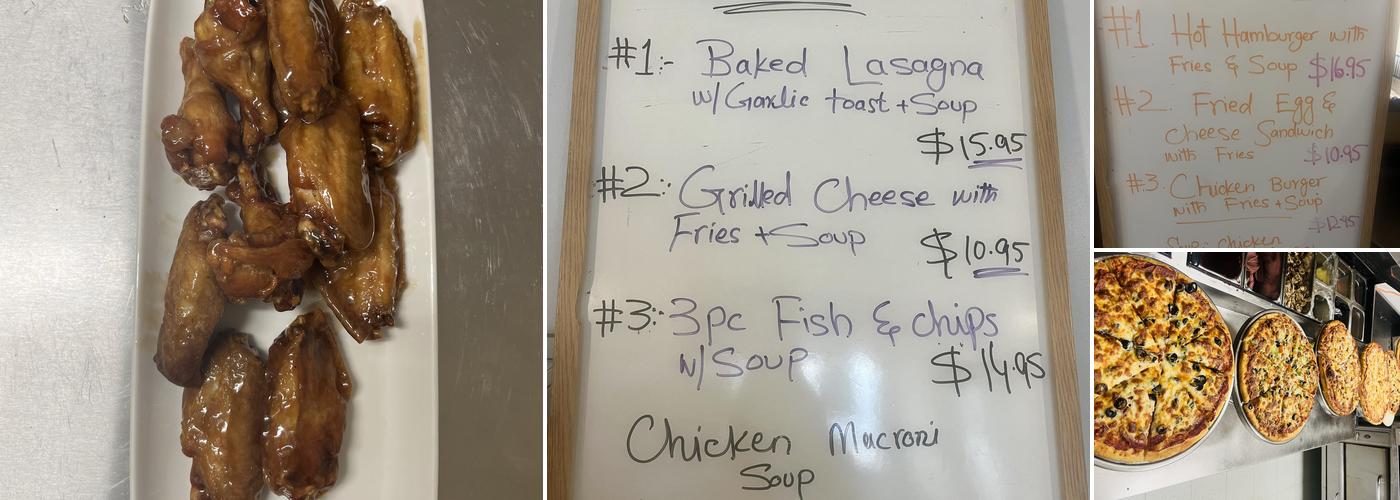 #1:- Baked Lasagna
w/Garlic toast + Soup
$15.95
#2:- Grilled Cheese with
Fries + Soup
$10.95
#3:- 3pc Fish & chips
w/ Soup
$14.95
Chicken Macroni
Soup
#1. Hot Hamburger with
Fries & Soup $16.95
#2. Fried Egg &
Cheese Sandwich
with Fries $10.95
#3. Chicken Burger
with Fries + Soup
$12.95
Chicken